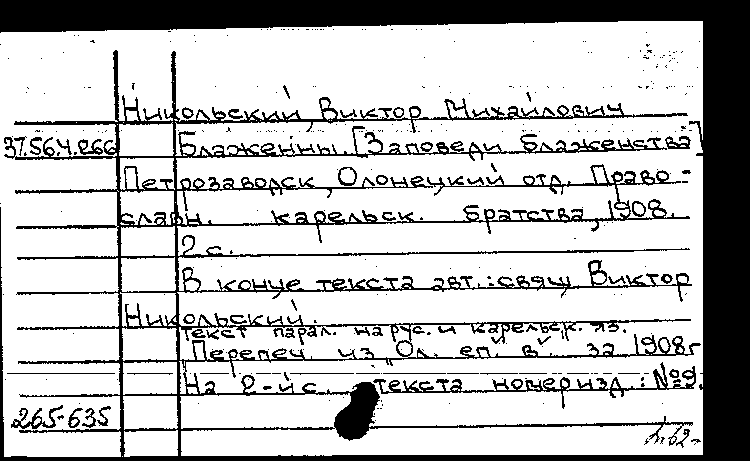 Никольский, Виктор Михайлович
37.564.266 Блаженны. [Заповеди блаженства]
Петрозаводск, Олонецкий отд. Право-
славн. карельск. братства, 1908.
2 с.
В конце текста авт.: свящ Виктор
Никольский.
Текст парал. на рус. и карельск. яз.
Перепеч. из „Ол. еп. в." за 1908г
На 2-й с. текста номер изд.: №9.
265-635